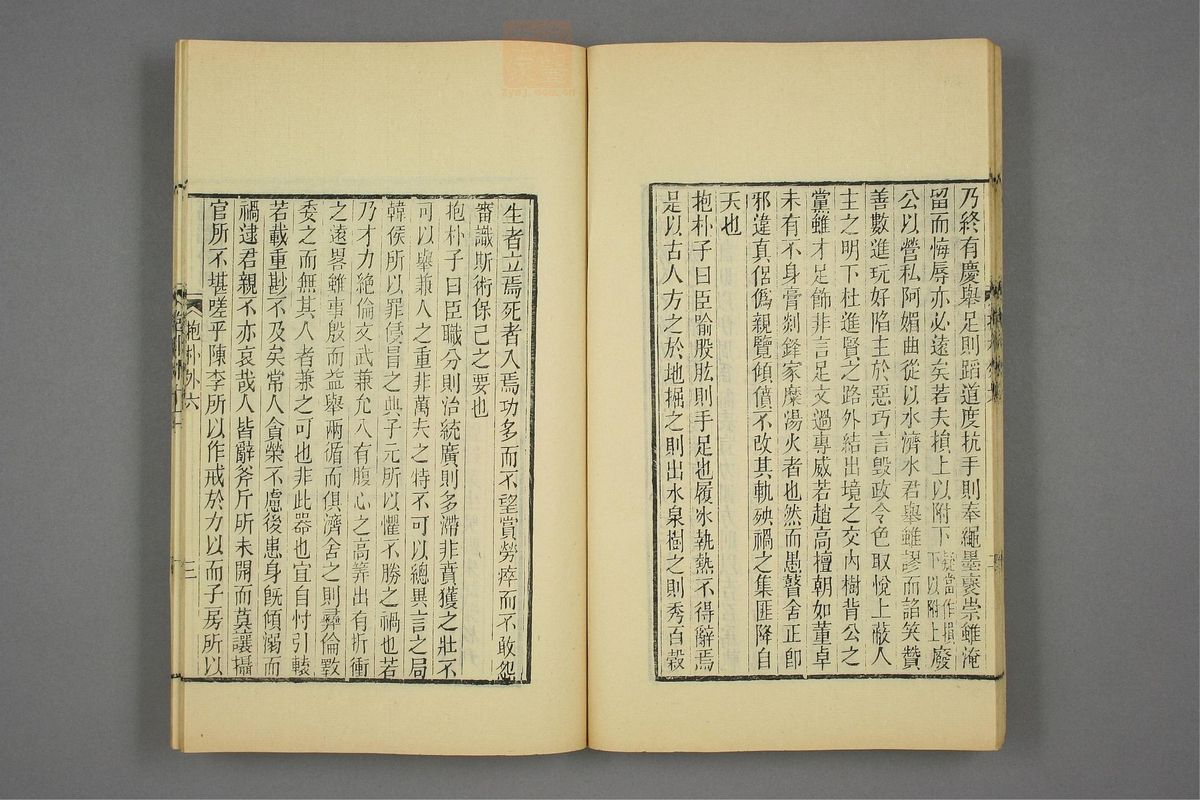 乃終有慶舉足則蹈道度抗手則奉繩墨褒崇雖淹
留而悔辱亦必遠矣若夫損上以附下疑當作損下以附上廢
公以營私阿媚曲從以水濟水君舉雖謬而諂笑贊
善數進玩好陷主於惡巧言毀政令色取悅上蔽人
主之明下杜進賢之路外結出境之交內樹背公之
黨雖才足飾非言足文過專威若趙高擅朝如董卓
未有不身膏剡鋒家糜湯火者也然而愚瞽舍正卽
邪違真侶僞親覽傾僨不改其軌殃禍之集匪降自
天也
抱朴子曰臣喻股肱則手足也履冰執熱不得辭焉
是以古人方之於地掘之則出水泉樹之則秀百穀
生者立焉死者入焉功多而不望賞勞瘁而不敢怨
審識斯術保己之要也
抱朴子曰臣職分則治統廣則多滯非賁獲之壯不
可以舉兼人之重非萬夫之特不可以總異言之局
韓侯所以罪侵冒之典子元所以懼不勝之禍也若
乃才力絕倫文武兼允入有腹心之高筭出有折衝
之遠畧雖事殷而益舉兩循而俱濟舍之則彝倫斁
委之而無其人者兼之可也非此器也宜自忖引轅
若載重尠不及矣常人貪榮不慮後患身旣傾溺而
禍逮君親不亦哀哉人皆辭斧斤所未開而莫讓攝
官所不堪嗟乎陳李所以作戒於力以而子房所以
抱朴外六
三